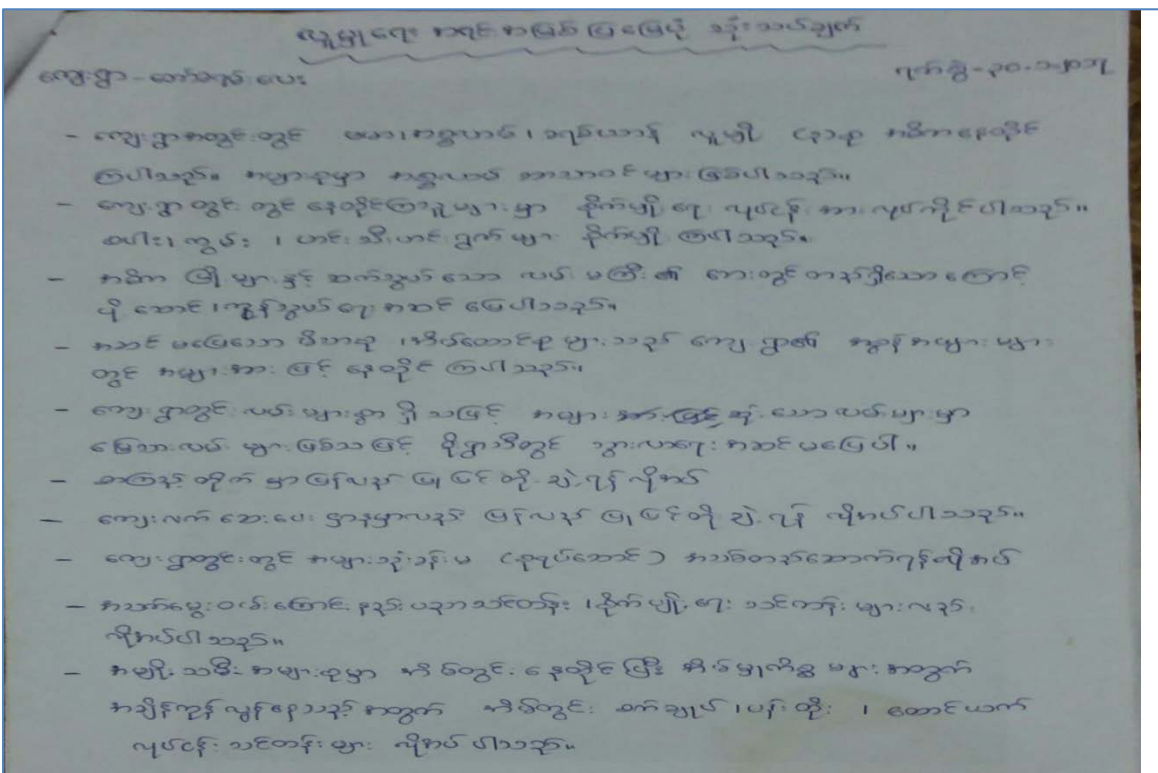 လူမှုရေး အရင်းအမြစ်ပြမြေပုံ သုံးသပ်ချက်
ကျေးရွာ - တော်
ရက်စွဲ - ၃၀.၁.၂၀၁၇
- ကျေးရွာအတွင်းတွင် ဗမာ၊ အစ္စလာမ်၊ ခရစ်ယာန် လူမျိုး (၃) စု အဓိကနေထိုင်
ကြပါသည်။ အများစုမှာ အစ္စလာမ် ဘာသာဝင် များ ဖြစ်ပါသည်။
- ကျေးရွာ တွင်း တွင် နေထိုင်ကြသူများ မှာ စိုက်ပျိုး ရေး လုပ်ငန်း အား လုပ်ကိုင်ပါသည်။
စပါး၊ ကွမ်း ၊ ဟင်းသီးဟင်းရွက် များ စိုက်ပျိုး ကြပါသည်။
- အဓိက မြို့ များ နှင့် ဆက်သွယ် သော လမ်း မကြီး ၏ ဘေးတွင် တည်ရှိသော ကြောင့်
ပို့ ဆောင် ၊ ကူးသန်းသွယ် ရေး အဆင် ပြေပါသည်။
- အဆင် မပြေသော မိသားစု ၊ အိမ်ထောင်စု များ သည် ကျေးရွာ၏ အစွန်အဖျား များ
တွင် အများအား ဖြင့် နေထိုင် ကြပါသည်။
- ကျေးရွာတွင်း လမ်း များစွာ ရှိ သဖြင့် အများ ဆုံး သော လမ်းများ မှာ
မြေသားလမ်း များ ဖြစ်သ ဖြင့် မိုးရွာသီတွင် သွားလာရေး အဆင်မပြေပါ။
- စာကြည့် တိုက် မှာ ပြန်လည် ပြုပြင် တိုးချဲ့ ရန် လိုအပ်
- ကျေးလက် ဆေးပေး ဌာနမှာလည်း ပြန်လည် ပြုပြင်တိုးချဲ့ ရန် လိုအပ်ပါသည်။
- ကျေးရွာတွင်း တွင် အများသုံးခန်းမ (စုရပ်ဆောင်) အသစ်တည်ဆောက်ရန်လိုအပ်
- အသက်မွေးဝမ်းကြောင်း နည်းပညာ သင်တန်း ၊ စိုက်ပျိုး ရေး သင်တန်း များလည်း
လိုအပ်ပါသည်။
- အမျိုး သမီး အများစုမှာ အိမ်တွင်း နေထိုင် ပြီး အိမ်မှုကိစ္စ များ အတွက်
အချိန်ကုန်လွန်နေသည့် အတွက် အိမ်တွင်း စက်ချုပ် ၊ ပန်းထိုး ၊ ထောင်ယက်
လုပ်ငန်း သင်တန်း များ လိုအပ် ပါသည်။